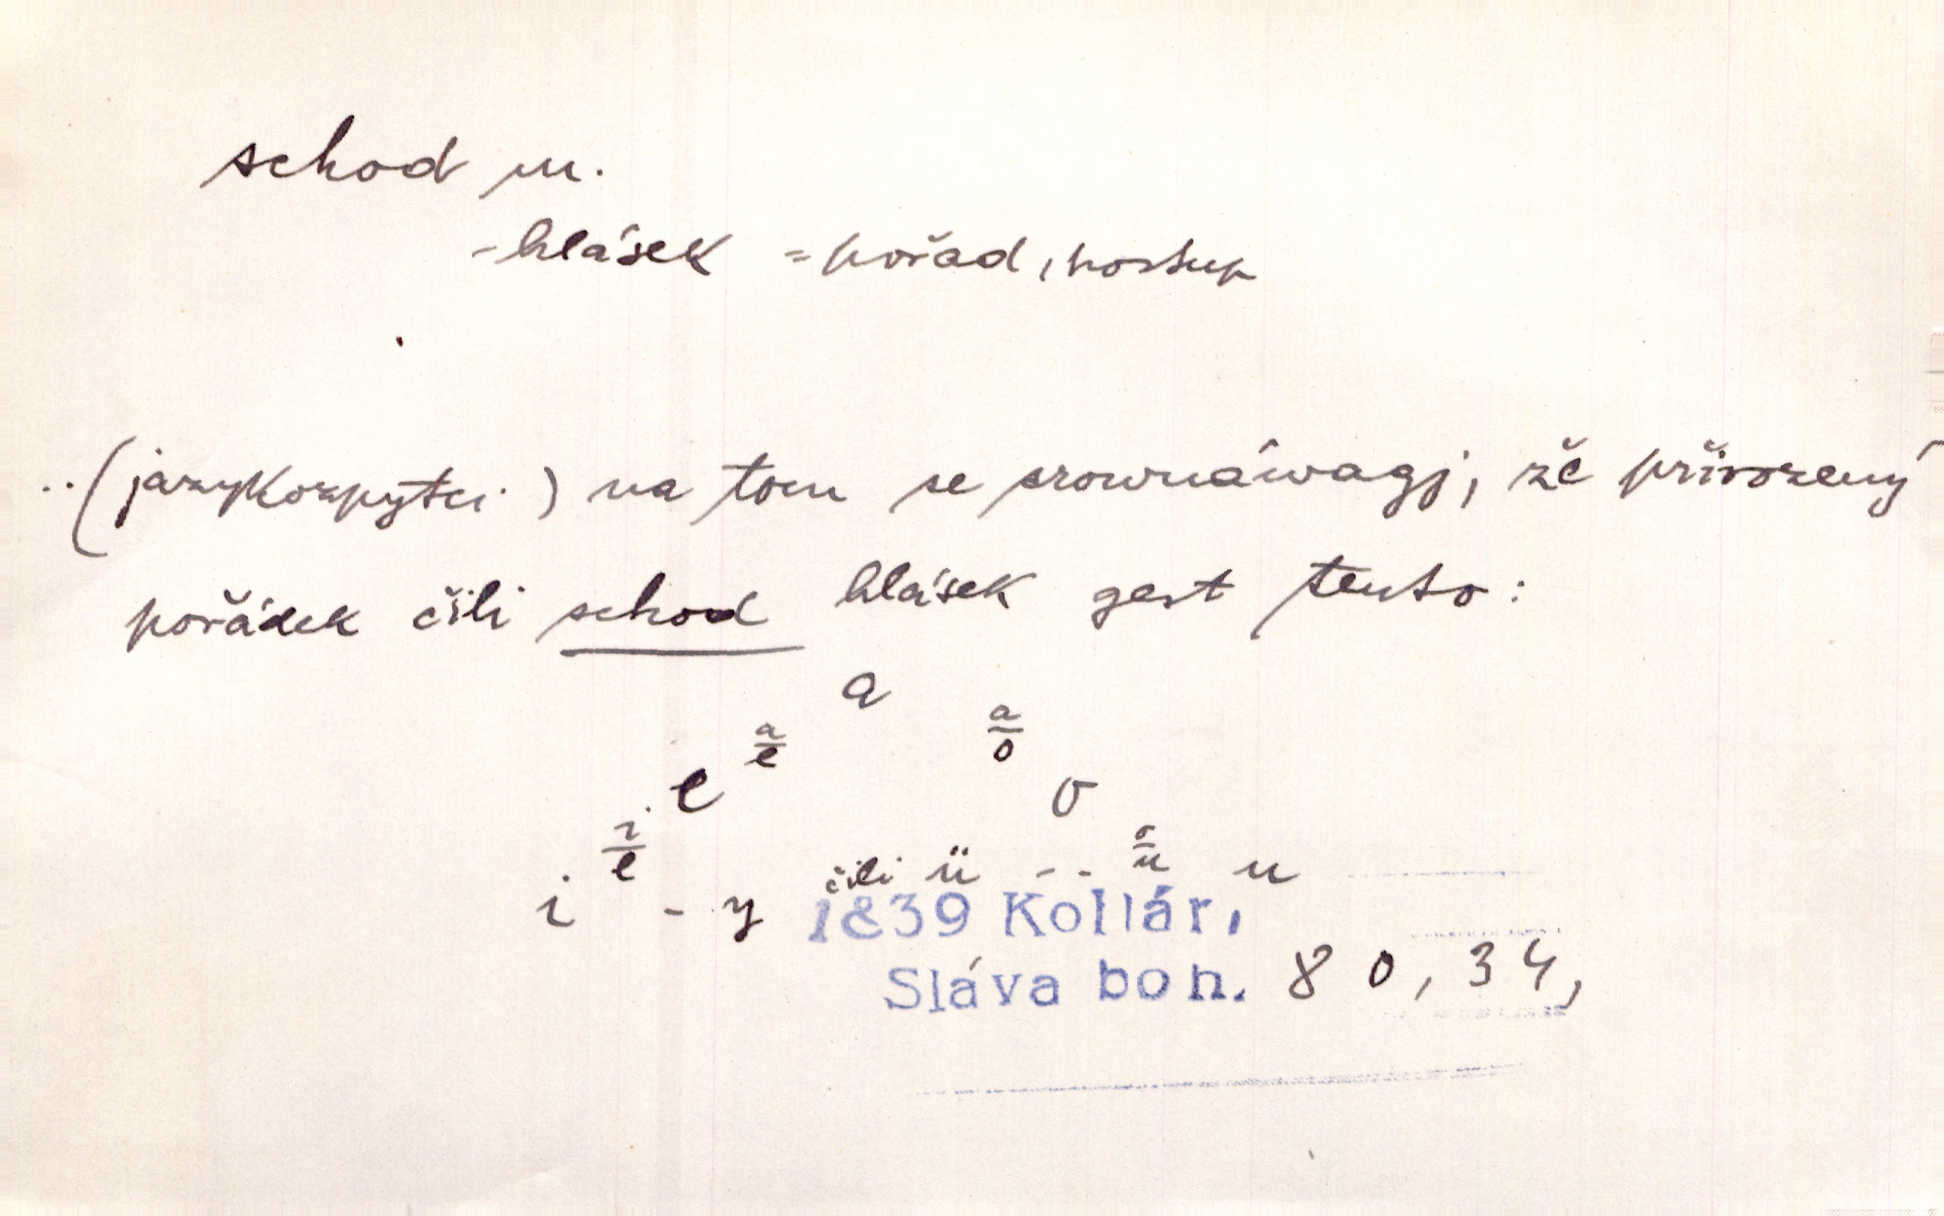 schod m.
-hlásek = pořad, postup
..(jazykozpytci) na tom se srownáwagj, že přirozený
pořádek čili schod hlásek gest tento:
a
a/e a/o
e o
i/e o/u
i - y čili ü -- u
1839 Kollár,
Sláva boh. 80, 34,